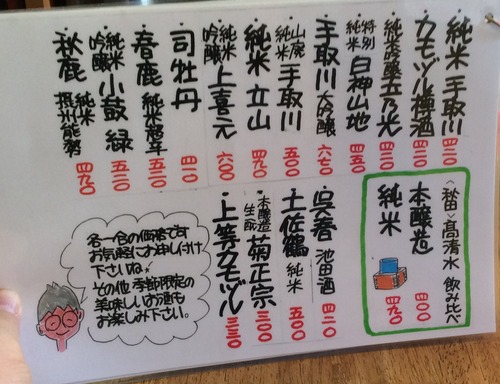 純米 手取川 四二〇
カモヅル樽酒 四二〇
純米吟醸五乃光
特別純米 白神山地 四五〇
手取川 大吟醸 六七〇
山廃純米 手取川 五〇〇
純米 立山 四九〇
純米吟醸 上喜元 六〇〇
司牡丹 四一〇
春鹿 純米超辛 五二〇
純米吟醸 小鼓 緑 五二〇
秋鹿 純米 摂州能勢 四九〇
〈秋田〉高清水 飲み比べ
本醸造 四〇〇
純米 四九〇
呉春 池田酒 四二〇
土佐鶴 純米 五〇〇
本醸造生酛 菊正宗 三〇〇
上等カモヅル 三三〇
各一合の価格です
お気軽にお申し付け
下さいね。
その他 季節限定の
美味しいお酒も
お楽しみ下さい。